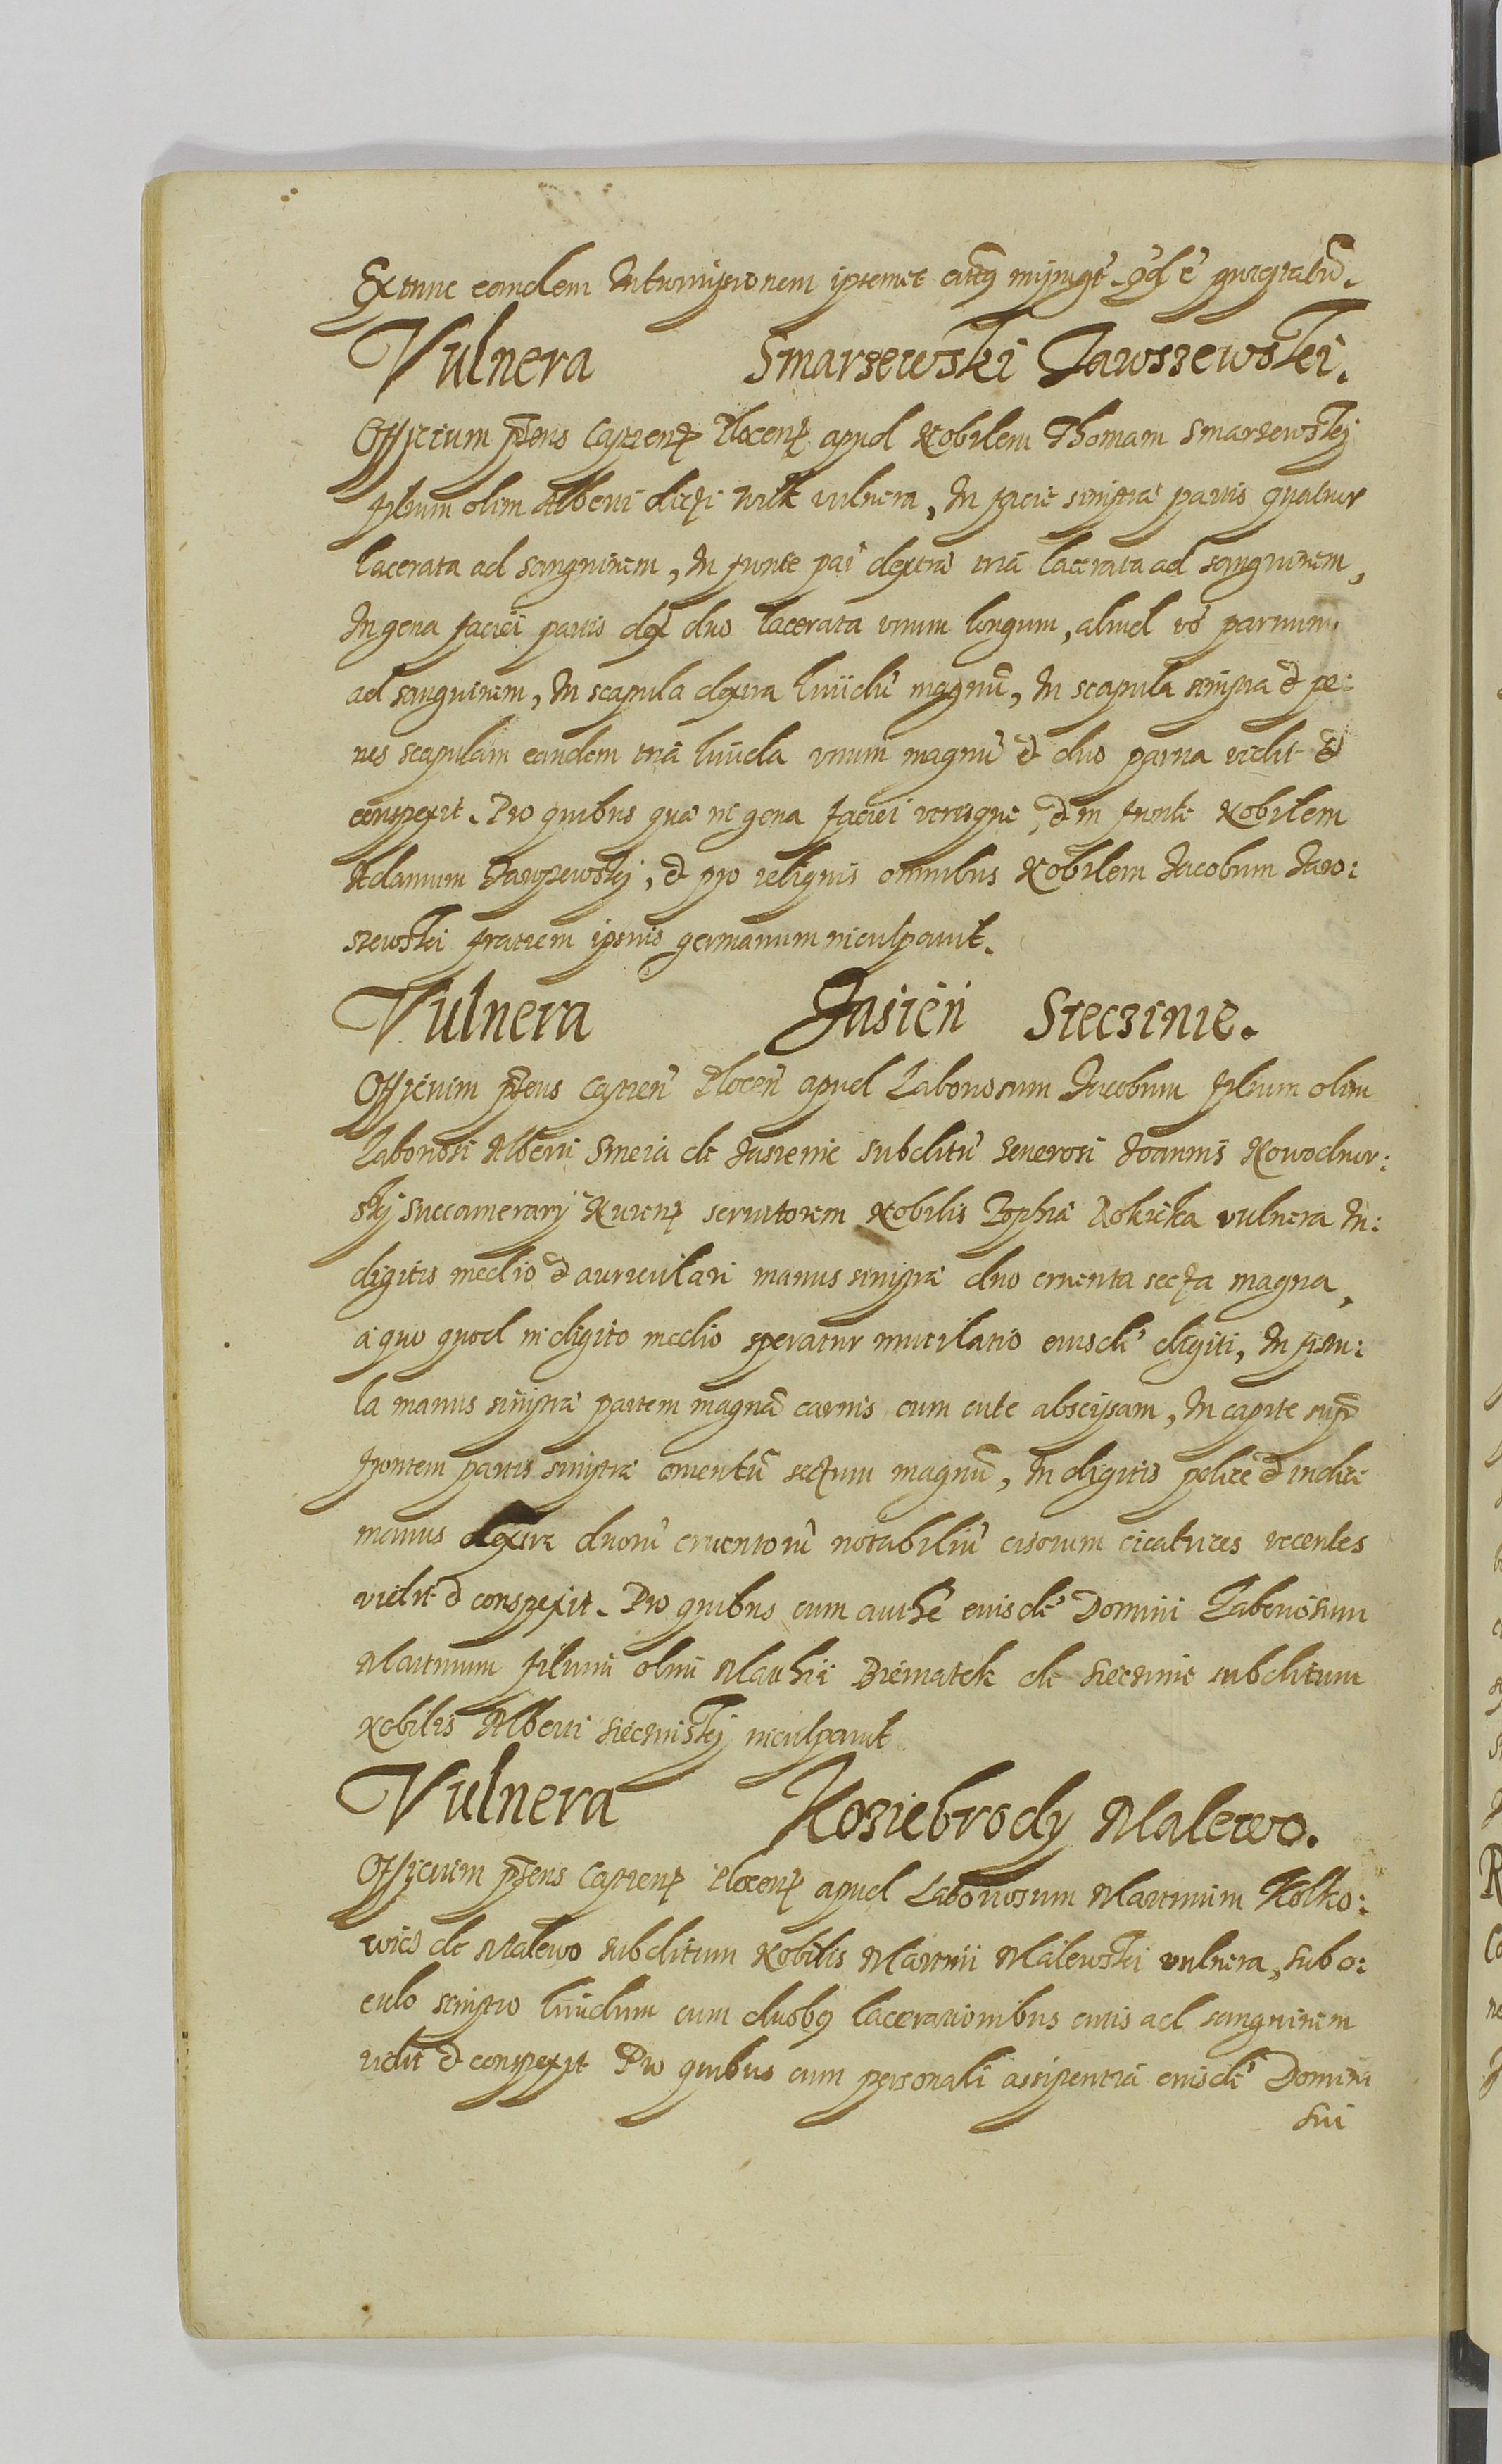 Extunc eandem Intromissionem ipsemet
Vulnera Smarzewski Jawszewski.
Officium p̃sens Capten̄ Plocen̄ apud Nobilem Thomam Smarzewskj
filium olim Alberti dicti Wilk vulnera, In facie sinistræ partis quatuor
lacerata ad sanguinem, In fronte par̃ dextræ tria lacerata ad sanguinem,
In gena faciei partis dex̃ duo lacerata vnum longum, aliud vo parvum
ad sanguinem, In scapula dextra liuidũ magnũ, In scapula sinistra et pe:
nes scapulam eandem tria liuida vnum magnũ et duo parua vidit et
conspexit. Pro quibus quæ in gena faciei vtrisque, et in fronte Nobilem
Adamum Jawszewskj, et pro reliquis omnibus Nobilem Jacobum Jaw:
szewski fratrem ipsius germanum inculpauit.
Vulnera Jasień Sieczinie.
Officium p̃sens Capten̄ Plocen̄ apud Laboriosum Jacobum filium olim
Laboriosi Alberti Smeia de Jasienie subditũ Generosi Joannis Nowodwor:
skj Succamerarij seruitorem Nobilis Zophiæ Rokicka vulnera In:
digitis medio et auriculari manus sinistræ duo cruenta secta magna,
a quo quod in digito medio speratur mutilatio eiusdẽ digiti, In
la manus sinistræ partem magnã carnis cum cute abscissam, In capite sup̃
frontem partis sinistræ cruentũ sectum magnũ, In digitis police et indice
manus dextræ duorũ cruentorũ notabiliũ cisorum cicatrices recentes
vidit et conspexit. Pro quibus cum eiusdẽ Domini Laboriosum
Martinum filium olim Mathiæ Biernatek de Siecinie subditum
Nobilis Alberti Siecinskj inculpauit
Vulnera Koziebrody Malewo.
Officium p̃sens Capten̄ Plocen̄ apud Laboriosum Martinum Kolko:
wicz de Malewo subditum Nobilis Martini Malewski vulnera, sub o:
culo sinistro liuidum cum duobq lacerationibus cutis ad sanguinem
vidit et conspexit Pro quibus cum personali assistentia eiusdẽ Domini
sui